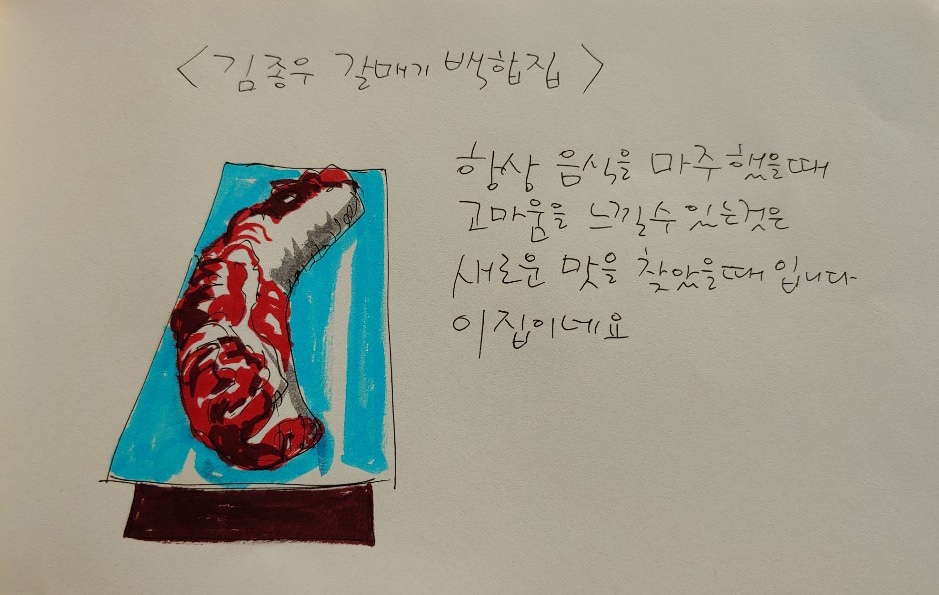 <김종우 갈매기 백합집>
항상 음식을 마주했을때
고마움을 느낄수 있는것은
새로운 맛을 찾았을때 입니다
이집이네요